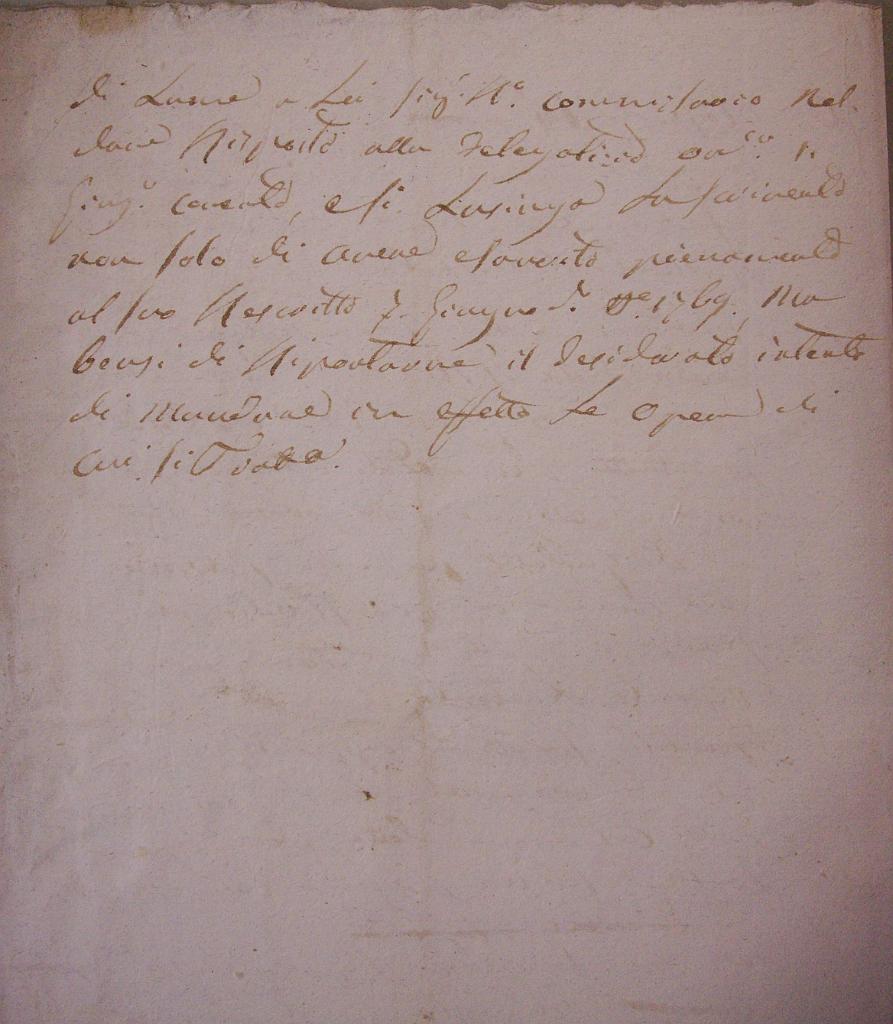 di Lume a Lei Sig.r R.o commissario nel
dare Risposta alla delegatizia
Giug.o corrente, e si Lusinga
non solo di avere esaurito pienamente
al suo Rescritto 7. Giugno 1769, Ma
bensi di Riportarne il desiderato intento
di Mandare in effetto Le opere di
cui si Tratta.